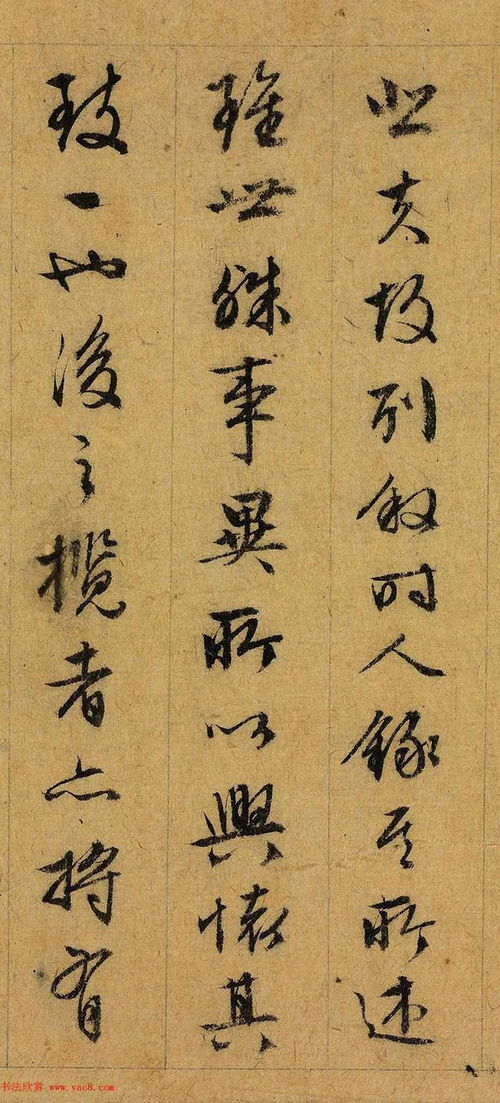 悲夫故列叙时人錄其所述
雖世殊事異所以興懷其
致一也後之攬者亦將有
书法欣赏 www.yac8.com